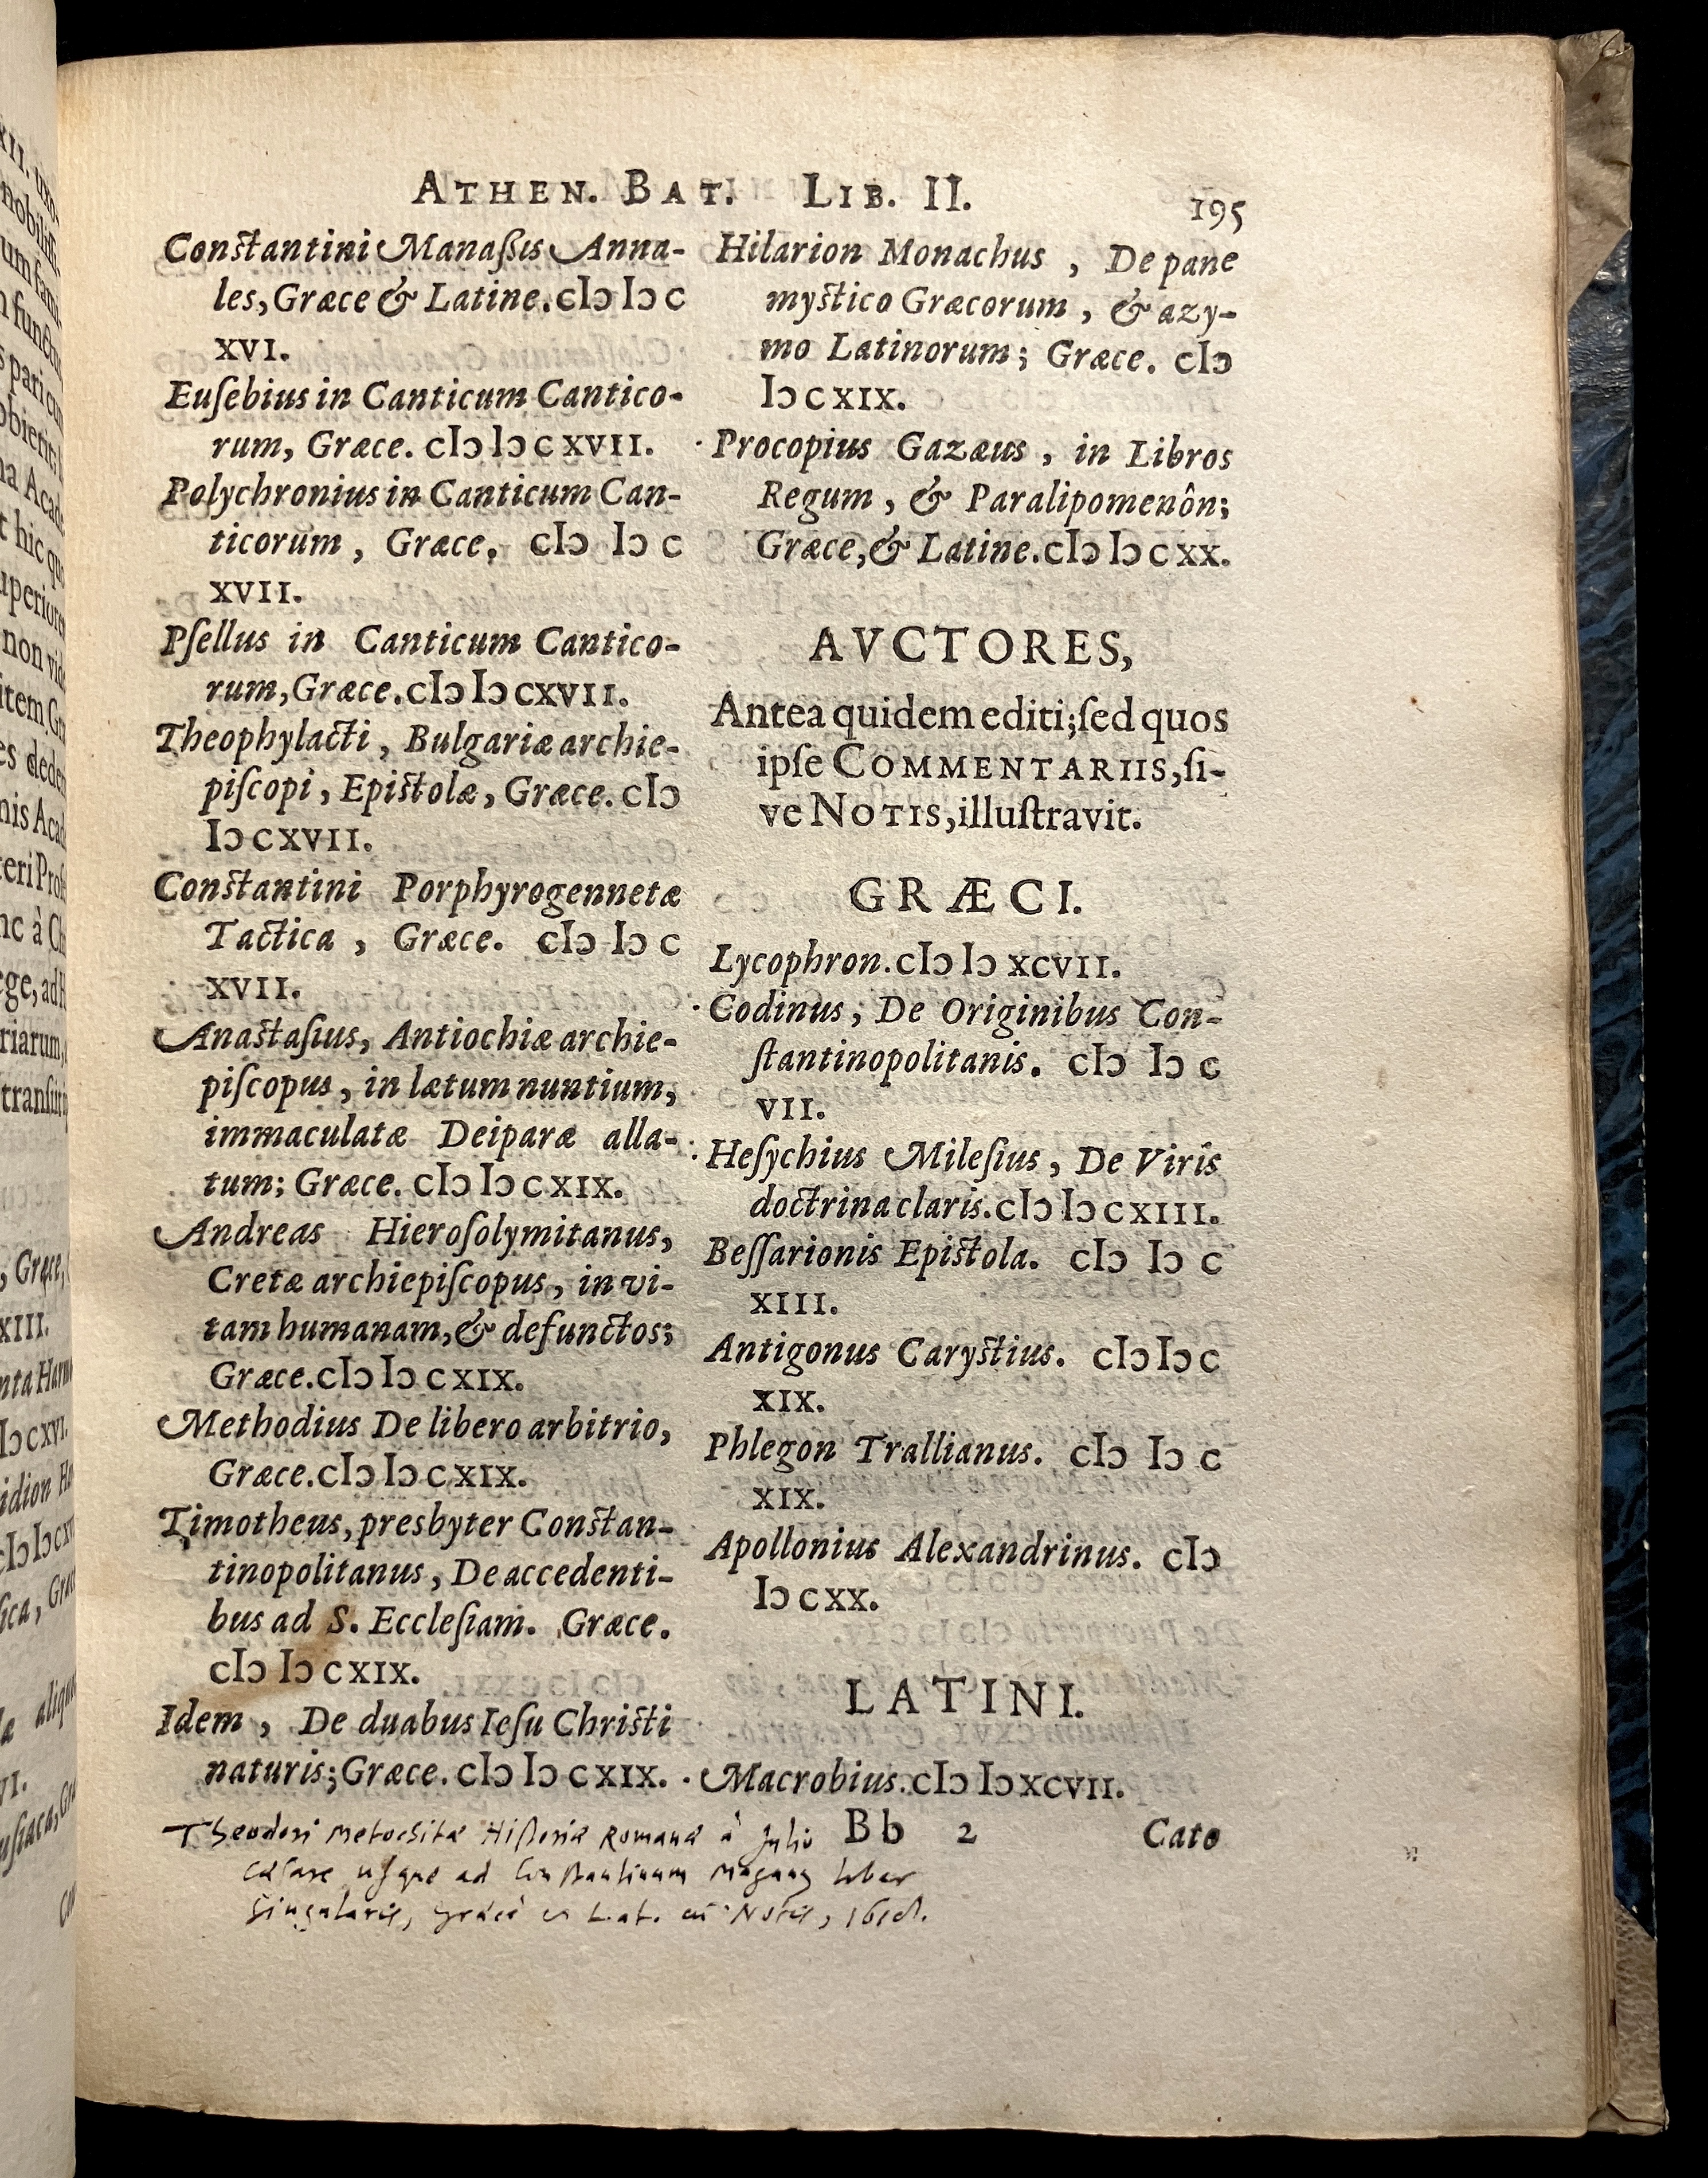 ATHEN. BAT. LIB. II. 195
Conſtantini Manaßis Anna-
les, Græce & Latine. cIↄ Iↄ c
XVI.
Euſebius in Canticum Cantico-
rum, Græce. cIↄ Iↄ c XVII.
Polychronius in Canticum Can-
ticorum, Græce, cIↄ Iↄ c
XVII.
Pſellus in Canticum Cantico-
rum, Græce. cIↄ Iↄ cXVII.
Theophylacti, Bulgariæ archie-
piſcopi, Epiſtolæ, Græce. cIↄ
Iↄ cXVII.
Conſtantini Porphyrogennetæ
Tactica, Græce. cIↄ Iↄ c
XVII.
Anaſtaſius, Antiochiæ archie-
piſcopus, in lætum nuntium,
immaculatæ Deiparæ alla-
tum; Græce. cIↄ Iↄ c XIX.
Andreas Hieroſolymitanus,
Cretæ archiepiſcopus, in vi-
tam humanam, & defunctos;
Græce. cIↄ Iↄ c XIX.
Methodius De libero arbitrio,
Græce. cIↄ Iↄ c XIX.
Timotheus, presbyter Conſtan-
tinopolitanus, De accedenti-
bus ad S. Eccleſiam. Græce.
cIↄ Iↄ c XIX.
Idem, De duabus Ieſu Chriſti
naturis; Græce. cIↄ Iↄ c XIX.
Theodori Metochitæ Hiſtoriæ Romanæ à Julio
Cæſare uſque ad Conſtantinum Magnum liber
Singularis, græcè et Lat. cū Notis, 1618.
Hilarion Monachus, De pane
myſtico Græcorum, & azy-
mo Latinorum; Græce. cIↄ
Iↄ c XIX.
· Procopius Gazæus, in Libros
Regum, & Paralipomenôn;
Græce, & Latine. cIↄ Iↄ c XX.
AVCTORES,
Antea quidem editi; ſed quos
ipſe COMMENTARIIS, ſi-
ve NOTIS, illuſtravit.
GRÆCI.
Lycophron. cIↄ Iↄ XCVII.
· Codinus, De Originibus Con-
ſtantinopolitanis. cIↄ Iↄ c
VII.
· Heſychius Mileſius, De Viris
doctrina claris. cIↄ Iↄ c XIII.
Beſſarionis Epiſtola. cIↄ Iↄ c
XIII.
Antigonus Caryſtius. cIↄ Iↄ c
XIX.
Phlegon Trallianus. cIↄ Iↄ c
XIX.
Apollonius Alexandrinus. cIↄ
Iↄ c XX.
LATINI.
· Macrobius. cIↄ Iↄ XCVII.
Bb 2 Cato